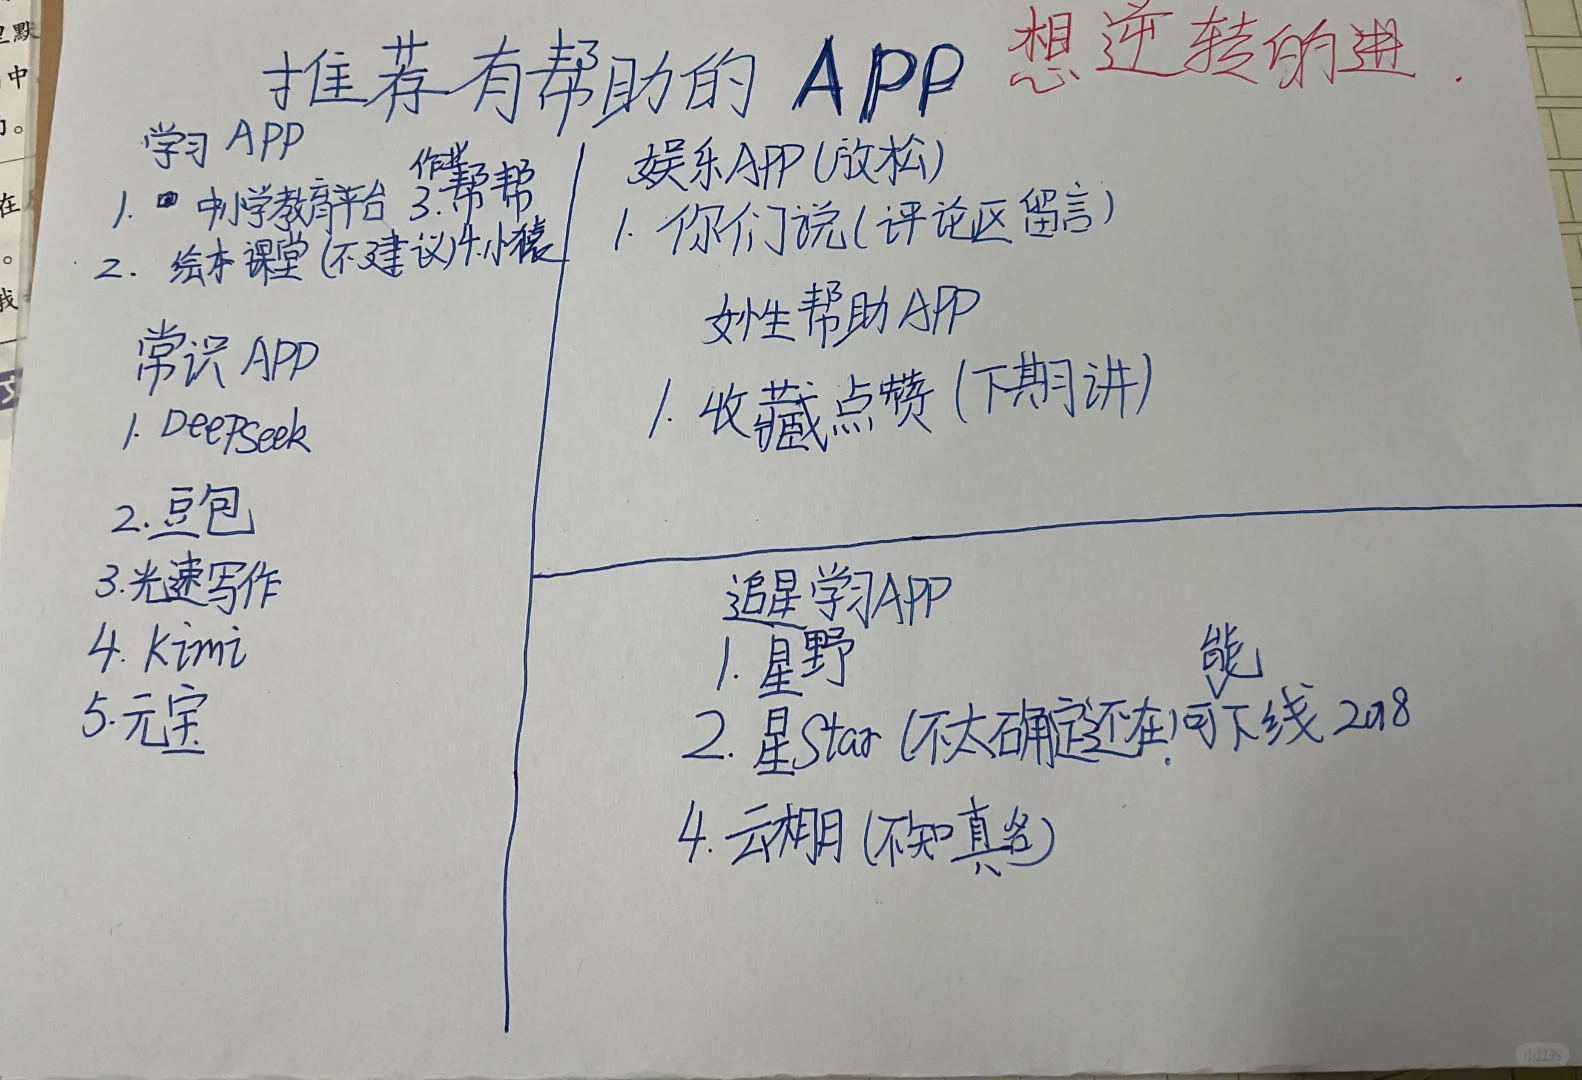 推荐有帮助的APP 想逆转的进.
学习APP
1. 中小学教育平台 3.作业帮帮
2. 绘本课堂(不建议) 4.小猿
常识APP
1. DeepSeek
2.豆包
3.光速写作
4. Kimi
5.元宝
娱乐APP(放松)
1. 你们说(评论区留言)
妙生帮助APP
1. 收藏点赞(下期讲)
追星学习APP
1. 星野
能
2. 星Star (不太确定还在)可下线
4. 云棚(不知真名)
默
中
。
在
。
我
小红书